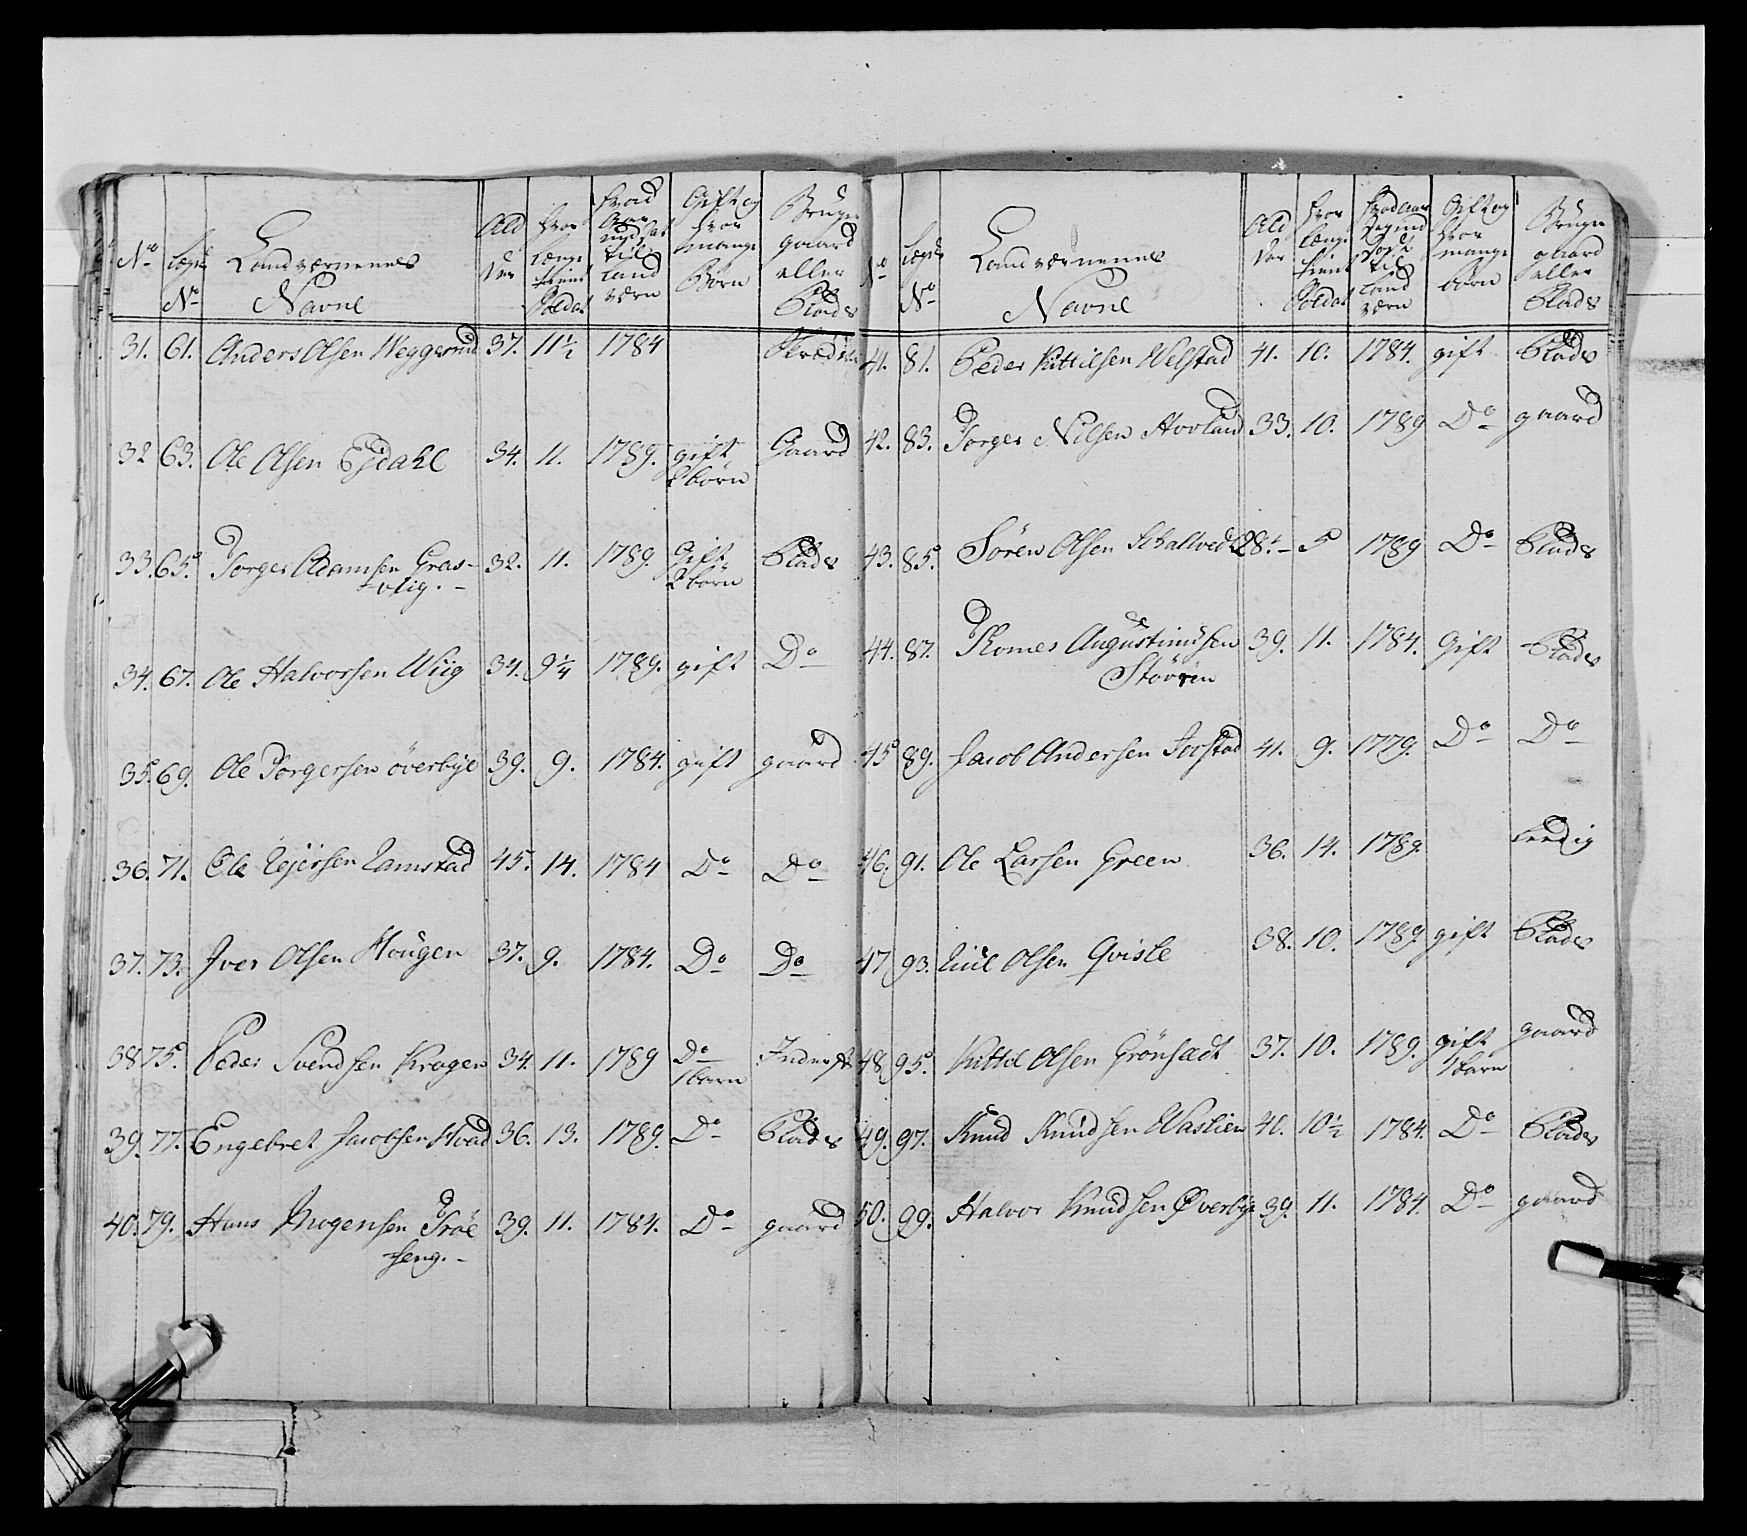 No Lægds No Landværnenes Navne Alder Hvor længe tient Soldat Hvad Aar indsat til Land værn Gift og hvor mange Børn Bruger gaard eller Plads
31. 61. Anders Olsen Weggerud 37. 11½ 1784
32 63. Ole Olsen Egdahl 34. 11. 1789. gift 2 børn Gaard
33. 65. Torger Adamsen Gras-
vlig. - 32. 11. 1789. Gift 2 børn Plads
34. 67. Ole Halvorsen Wiig 34. 9¼ 1789. gift Do
35. 69. Ole Torgersen överbye 39. 9. 1784. gift gaard
36. 71. Ole Rejersen Ramstad 45. 14. 1784 Do Do
37. 73. Iver Olsen Hougen 37. 9. 1784. Do Do
38 75. Peder Svendsen Kragen 34. 11. 1789 Do 1 barn Inderst
39. 77. Engebret Jacobsen Hvad 36. 13. 1789. Do Plads
40. 79. Hans Mogensen Tröe
seng. - 39. 11. 1784. Do gaard
No Lægds No Landværnenes Navne Alder Hvor længe tient Soldat Hvad Aar til Land værn Gift og hvor mange børn Bruger gaard eller Plads
41. 81. Peder Kittilsen Welstad 41. 10. 1784. gift Plads
42. 83. Torger Nilsen Hovland 33. 10. 1789 Do gaard
43. 85. Sören Olsen 28. - 5 1789 Do Plads
44. 87. Thomes Augustinusen
Stövren 39. 11. 1784. Gift Plads
45 89. Jacob Andersen Jorstad 41. 9. 1779. Do Do
46. 91. Ole Larsen Green 36. 14. 1789. Ledig
47 93. Juul Olsen Qvisle 38. 10. 1789 gift Plads
48. 95. Kittel Olsen Grönsadt 37. 10. 1789. gift 1 barn gaard
49. 97. Knud Knudsen Waslien 40. 10½ 1784. Do Plads
50. 99. Halvor Knudsen Øverbye 39. 11. 1784. Do gaard